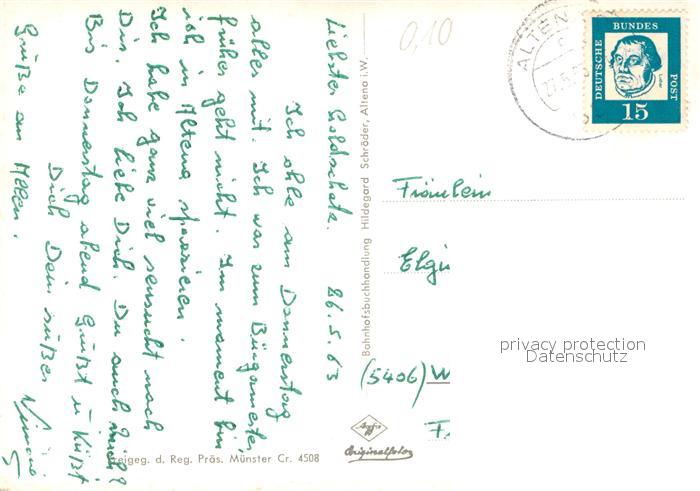 Liebster Goldschatz. 26.5.63
Ich ohle am Donnerstag
alles mit. Ich war zum Bürgermeister
früher geht nicht. Im moment bin
ich in Altena spazieren.
Ich habe ganz viel sensucht nach
Dir. Ich liebe Dich. Du auch mich?
Bis Donnerstag abend Grüßt u Küßt
Dich Dein süßer
Grüße an Allen.
Freigeg. d. Reg. Präs. Münster Cr. 4508
Bahnhofsbuchhandlung Hildegard Schröder, Altena i.W.
Agfa
Originalfoto
0,10
ALTEN
27.5.63
DEUTSCHE
BUNDES
POST
Luther
15
Fräulein
Elgi
(5406) W
privacy protection
Datenschutz